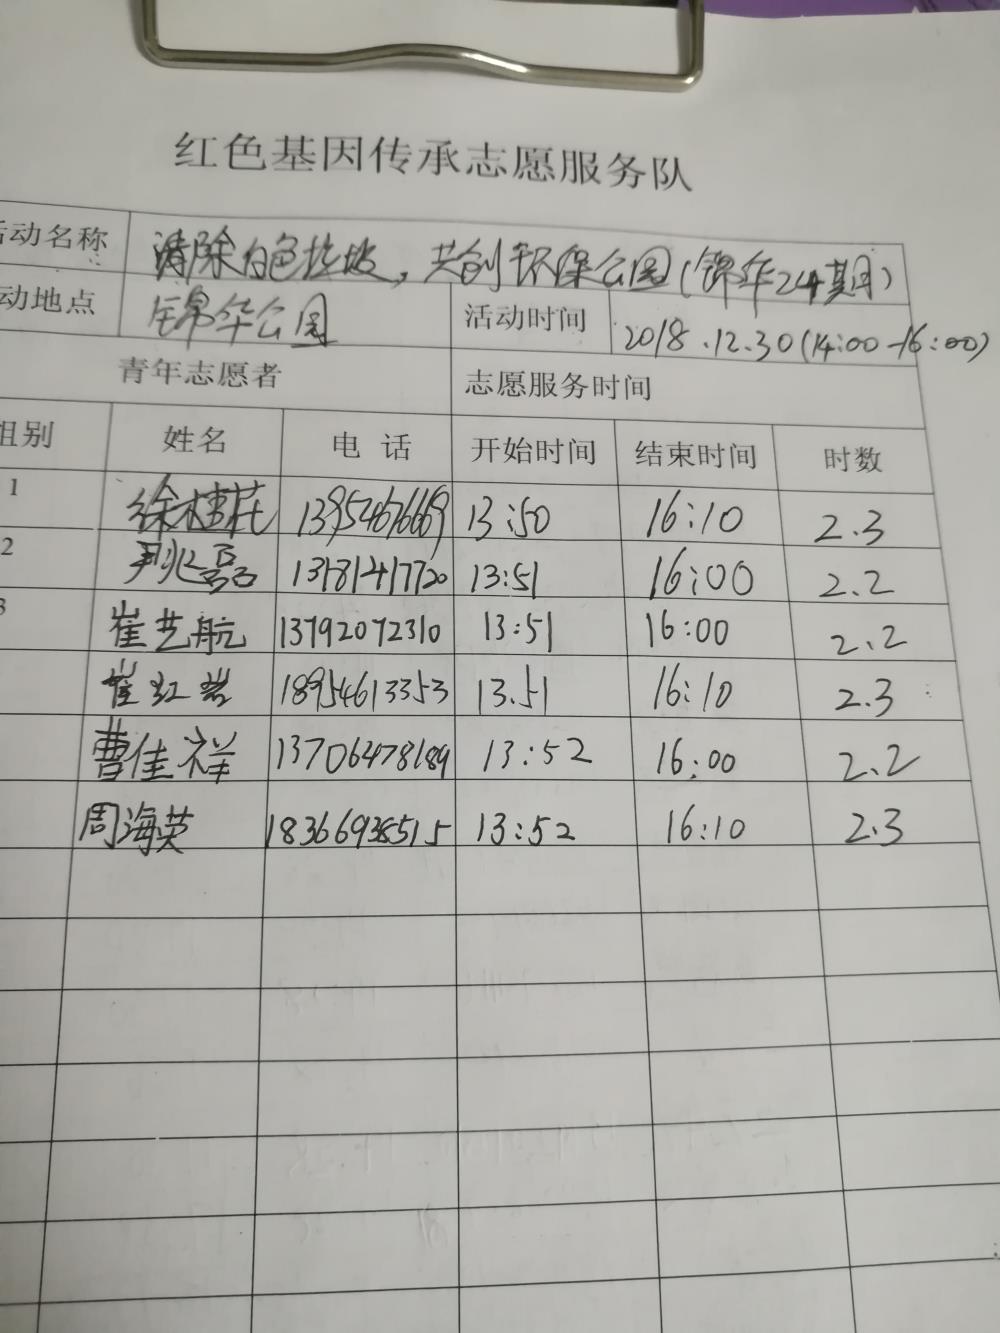 红色基因传承志愿服务队
活动名称 清除白色垃圾,共创环保公园(锦华24期)
动地点 锦华公园 活动时间 2018.12.30(14:00-16:00)
青年志愿者 志愿服务时间
组别 姓名 电话 开始时间 结束时间 时数
1 13954676669 13:50 16:10 2.3
2 13181417720 13:51 16:00 2.2
3 崔艺航 13792072310 13:51 16:00 2.2
崔红岩 18954613353 13.51 16:10 2.3
曹佳祥 13706478189 13:52 16:00 2.2
周海英 18366938515 13:52 16:10 2.3